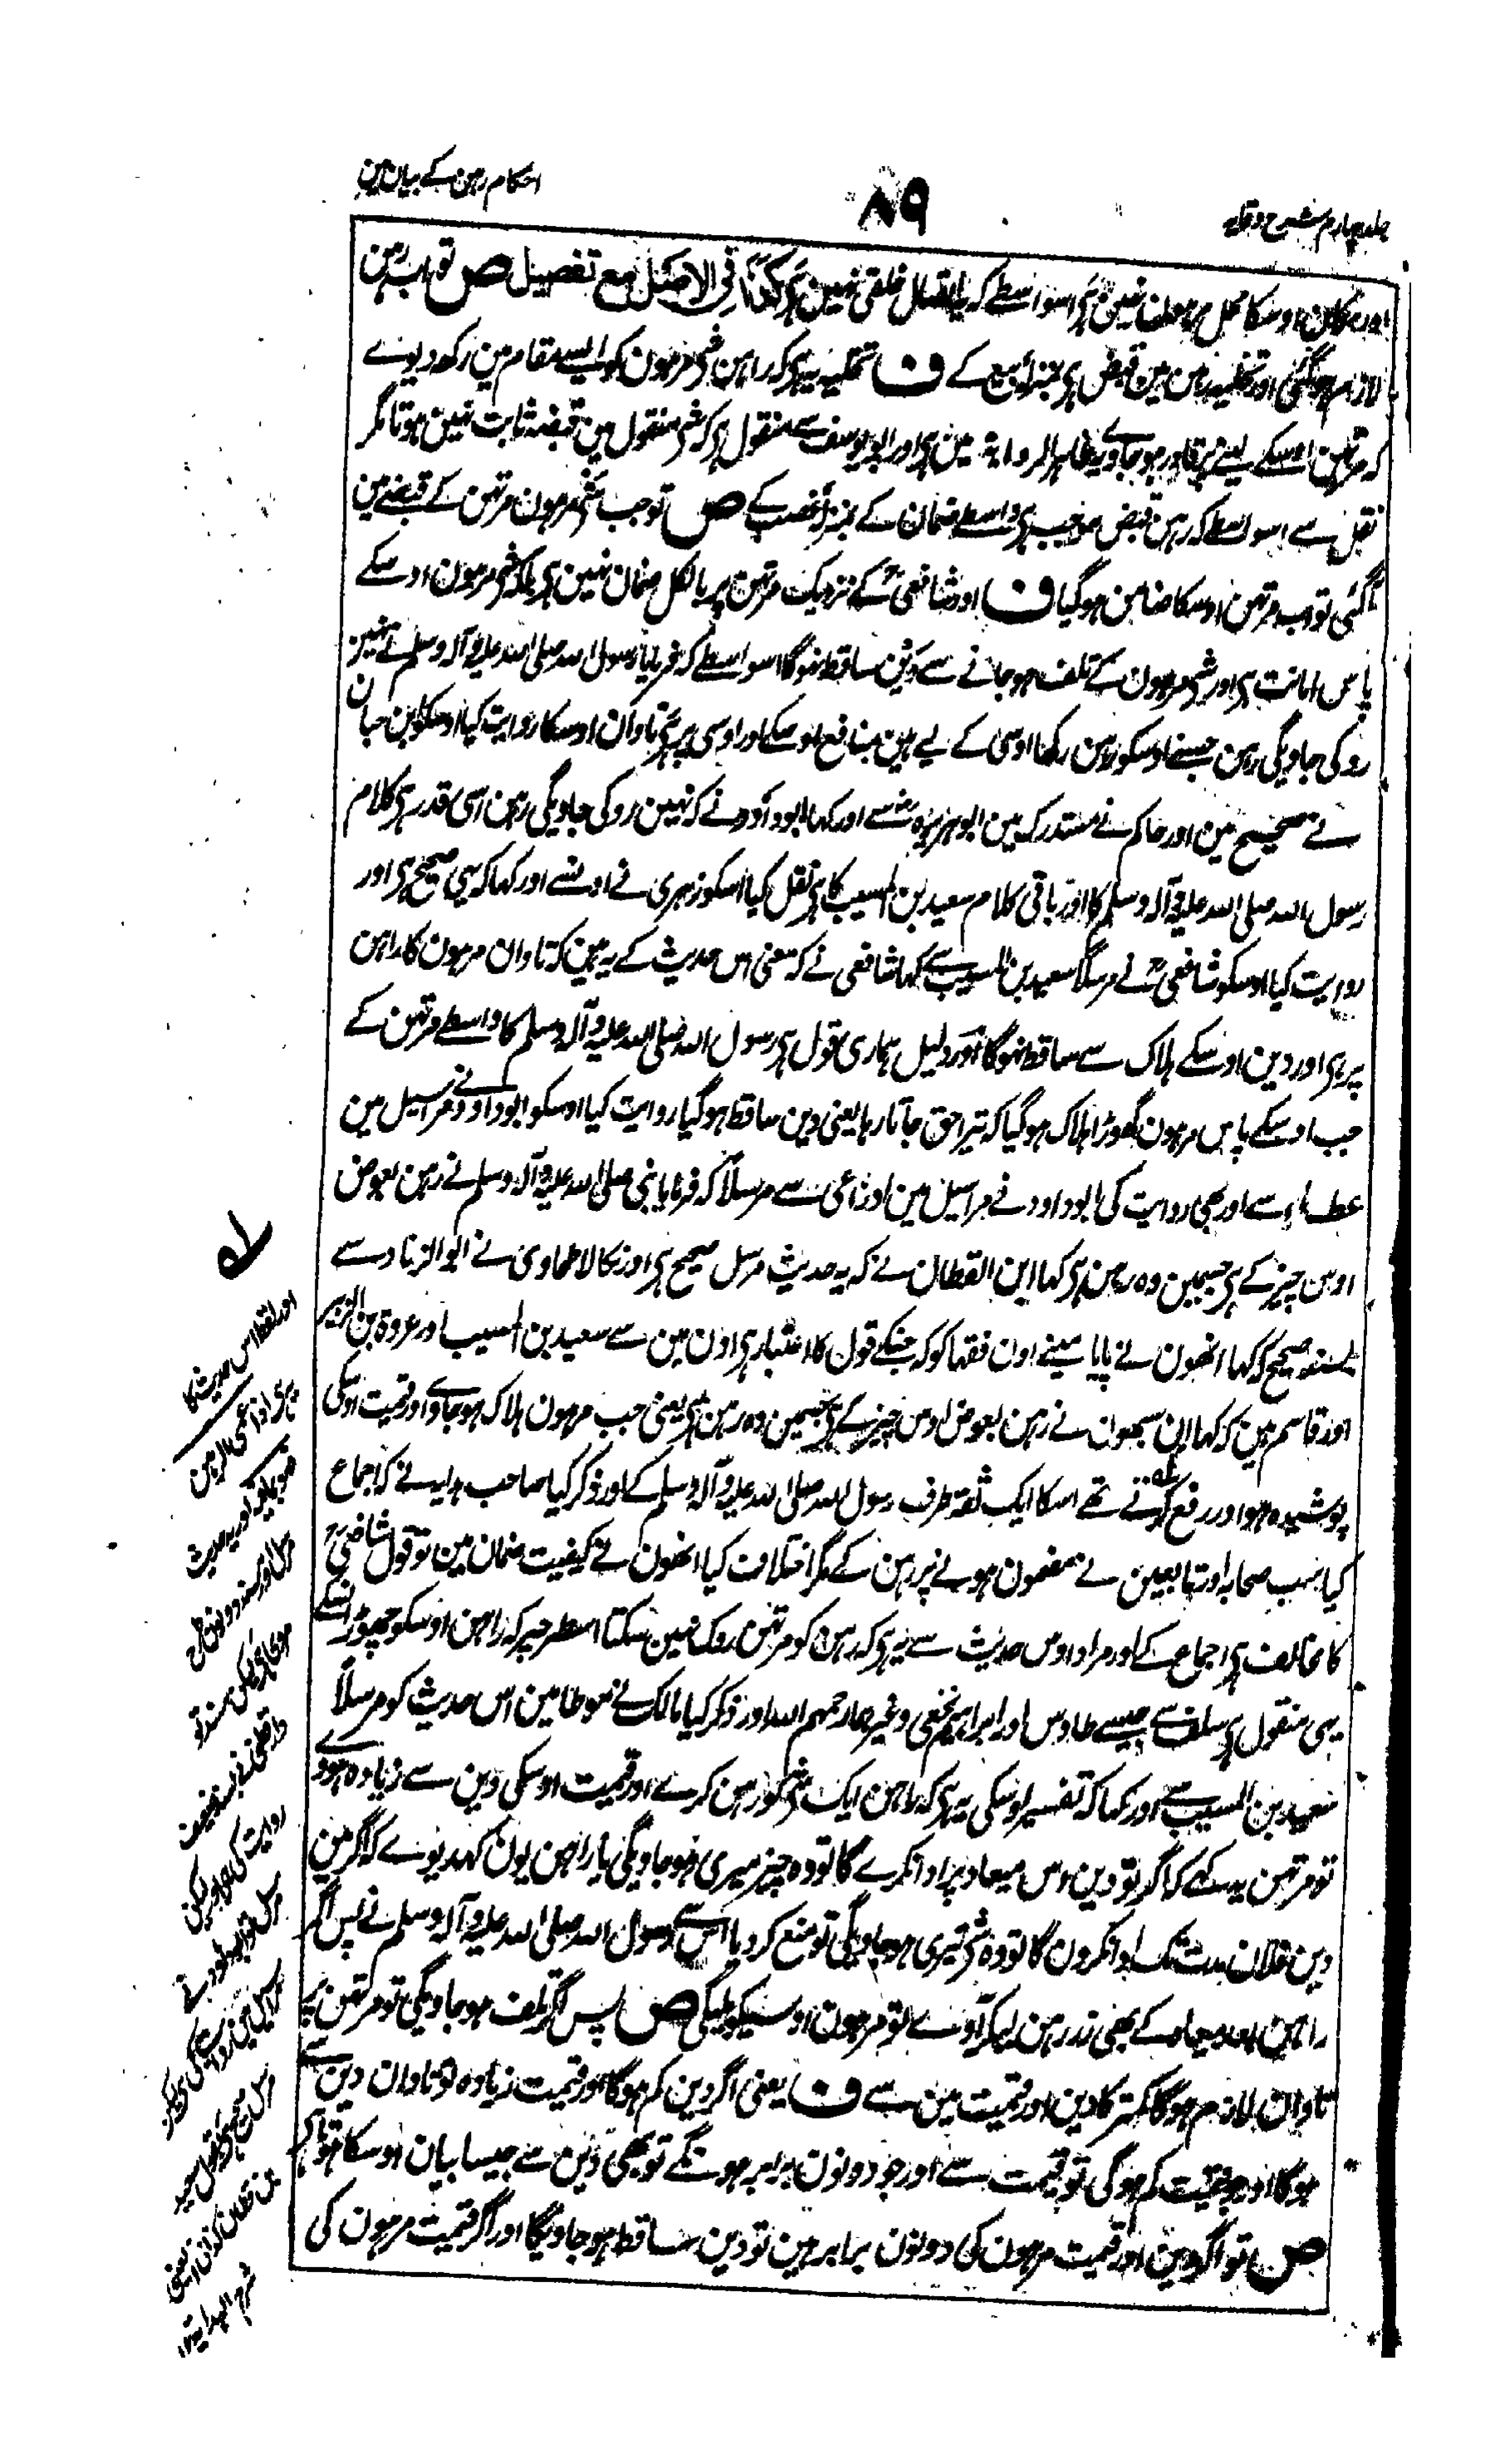 جلد چہارم شرح وقایہ
۸۹
احکام رہن کے بیان مین
اور مکان اوسکا محل مرہون نہین ہی اسواسطے کہ یہ اتصال خلقی نہین ہی کذا فی الاصل مع تفصیل ص تو اب رہن
لازم ہو گئی اور تخلیہ رہن مین قبض ہی بمنزلہ بیع کے ف تخلیہ یہ ہی کہ راہن شی مرہون کو ایسے مقام مین رکھ دیوے
کہ مرتہن اوسکے لینے پر قادر ہو جاوے یہ ظاہر الروایۃ مین ہی اور ابو یوسف سے منقول ہی کہ شی منقول مین قبضہ ثابت نہین ہوتا مگر
نقل سے اسواسطے کہ رہن قبض موجب ہی واسطے ضمان کے بمنزلہ غصب کے ص تو جب شی مرہون مرتہن کے قبضے مین
آگئی تو اب مرتہن اوسکا ضامن ہو گیا ف اور شافعی کے نزدیک مرتہن پر بالکل ضمان نہین ہی بلکہ شی مرہون اوسکے
پاس امانت ہی اور شی مرہون کے تلف ہو جانے سے دین ساقط نہوگا اسواسطے کہ فرمایا رسول اللہ صلی اللہ علیہ وآلہ وسلم نے نہین
روکی جاویگی رہن جسنے اوسکو رہن رکھا اوسی کے لیے ہین منافع اوسکے اور اوسی پر ہی تاوان اوسکا روایت کیا اوسکو ابن حبان
نے صحیح مین اور حاکم نے مستدرک مین ابو ہریرہ سے اور کہا ابو داؤد نے کہ نہین روکی جاویگی رہن اسی قدر ہی کلام
رسول اللہ صلی اللہ علیہ وآلہ وسلم کا اور باقی کلام سعید بن المسیب کا ہی نقل کیا اسکو زہری نے اونسے اور کہا کہ یہی صحیح ہی اور
روایت کیا اوسکو شافعی نے مرسلاً سعید بن المسیب سے کہا شافعی نے کہ معنی اس حدیث کے یہ ہین کہ تاوان مرہون کا راہن
پر ہی اور دین اوسکے ہلاک سے ساقط نہوگا اور دلیل ہماری قول ہی رسول اللہ صلی اللہ علیہ وآلہ وسلم کا واسطے مرتہن کے
جب اوسکے پاس مرہون گھوڑا ہلاک ہو گیا کہ تیرا حق جاتا رہا یعنی دین ساقط ہو گیا روایت کیا اوسکو ابو داؤد نے مراسیل مین
عطاء سے اور بھی روایت کی ابو داود نے مراسیل مین اوزاعی سے مرسلاً کہ فرمایا نبی صلی اللہ علیہ وآلہ وسلم نے رہن بعوض
اوس چیز کے ہی جسمین وہ رہن ہی کہا ابن القطان نے کہ یہ حدیث مرسل صحیح ہی اور نکالا طحاوی نے ابو الزناد سے
بسند صحیح کہ کہا انھون نے پایا مینے اون فقہا کو کہ جنکے قول کا اعتبار ہی اون مین سے سعید بن المسیب اور عروۃ بن الزبیر
اور قاسم ہین کہ کہا ان سبھون نے رہن بعوض اوس چیز کے ہی جسمین وہ رہن ہی یعنی جب مرہون ہلاک ہو جاوے اور قیمت اوسکی
پوشیدہ ہو اور رفع کرتے تھے اسکا ایک ثقہ طرف رسول اللہ صلی اللہ علیہ وآلہ وسلم کے اور ذکر کیا صاحب ہدایہ نے کہ اجماع
کیا سب صحابہ اور تابعین نے مضمون ہونے پر رہن کے مگر اختلاف کیا انھون نے کیفیت ضمان مین تو قول شافعی
کا مخالف ہی اجماع کے اور مراد اوس حدیث سے یہ ہی کہ رہن کو مرتہن روک نہین سکتا اسطرح پر کہ راہن اوسکو چھوڑا نسکے
یہی منقول ہی سلف سے جیسے طاوس اور ابراہیم نخعی وغیرہما رحمہم اللہ اور ذکر کیا مالک نے موطا مین اس حدیث کو مرسلاً
سعید بن المسیب سے اور کہا کہ تفسیر اوسکی یہ ہی کہ راہن ایک شی کو رہن کرے اور قیمت اوسکی دین سے زیادہ ہووے
تو مرتہن یہ کہے کہ اگر تو دین اس میعاد پر ادا نکرے گا تو وہ چیز میری ہو جاویگی یا راہن یون کہدیوے کہ اگر مین
دین فلان مدت تک ادا نکرون گا تو وہ شی تیری ہو جاویگی تو منع کر دیا اس سے رسول اللہ صلی اللہ علیہ وآلہ وسلم نے پس اگر
راہن بعد میعاد کے بھی زر رہن لیکر آوے تو مرہون اوسیکو ملیگی ص پس اگر تلف ہو جاویگی تو مرتہن پر
تاوان لازم ہوگا کمتر کا دین اور قیمت مین سے ف یعنی اگر دین کم ہوگا اور قیمت زیادہ تو تاوان دین سے
ہوگا اور جو قیمت کم ہوگی تو قیمت سے اور جو دونون برابر ہونگے تو بھی دین سے جیسا بیان اوسکا ہوتا ہے
ص تو اگر دین اور قیمت مرہون کی دونون برابر ہین تو دین ساقط ہو جاویگا اور اگر قیمت مرہون کی
اور لفظ اس حدیث کا
یہ ہی
الرہن
بما فیہ اور یہ حدیث
مرسل اور مسند دونون طرح
مروی ہی لیکن مسند تو
دارقطنی نے بسند ضعیف
روایت کی ہی اور لیکن
مرسل تو ابو داود نے
مراسیل مین روایت کی ہی
مرسل صحیح ہی
ابن قطان کذا فی العینی
شرح الہدایۃ ۱۲